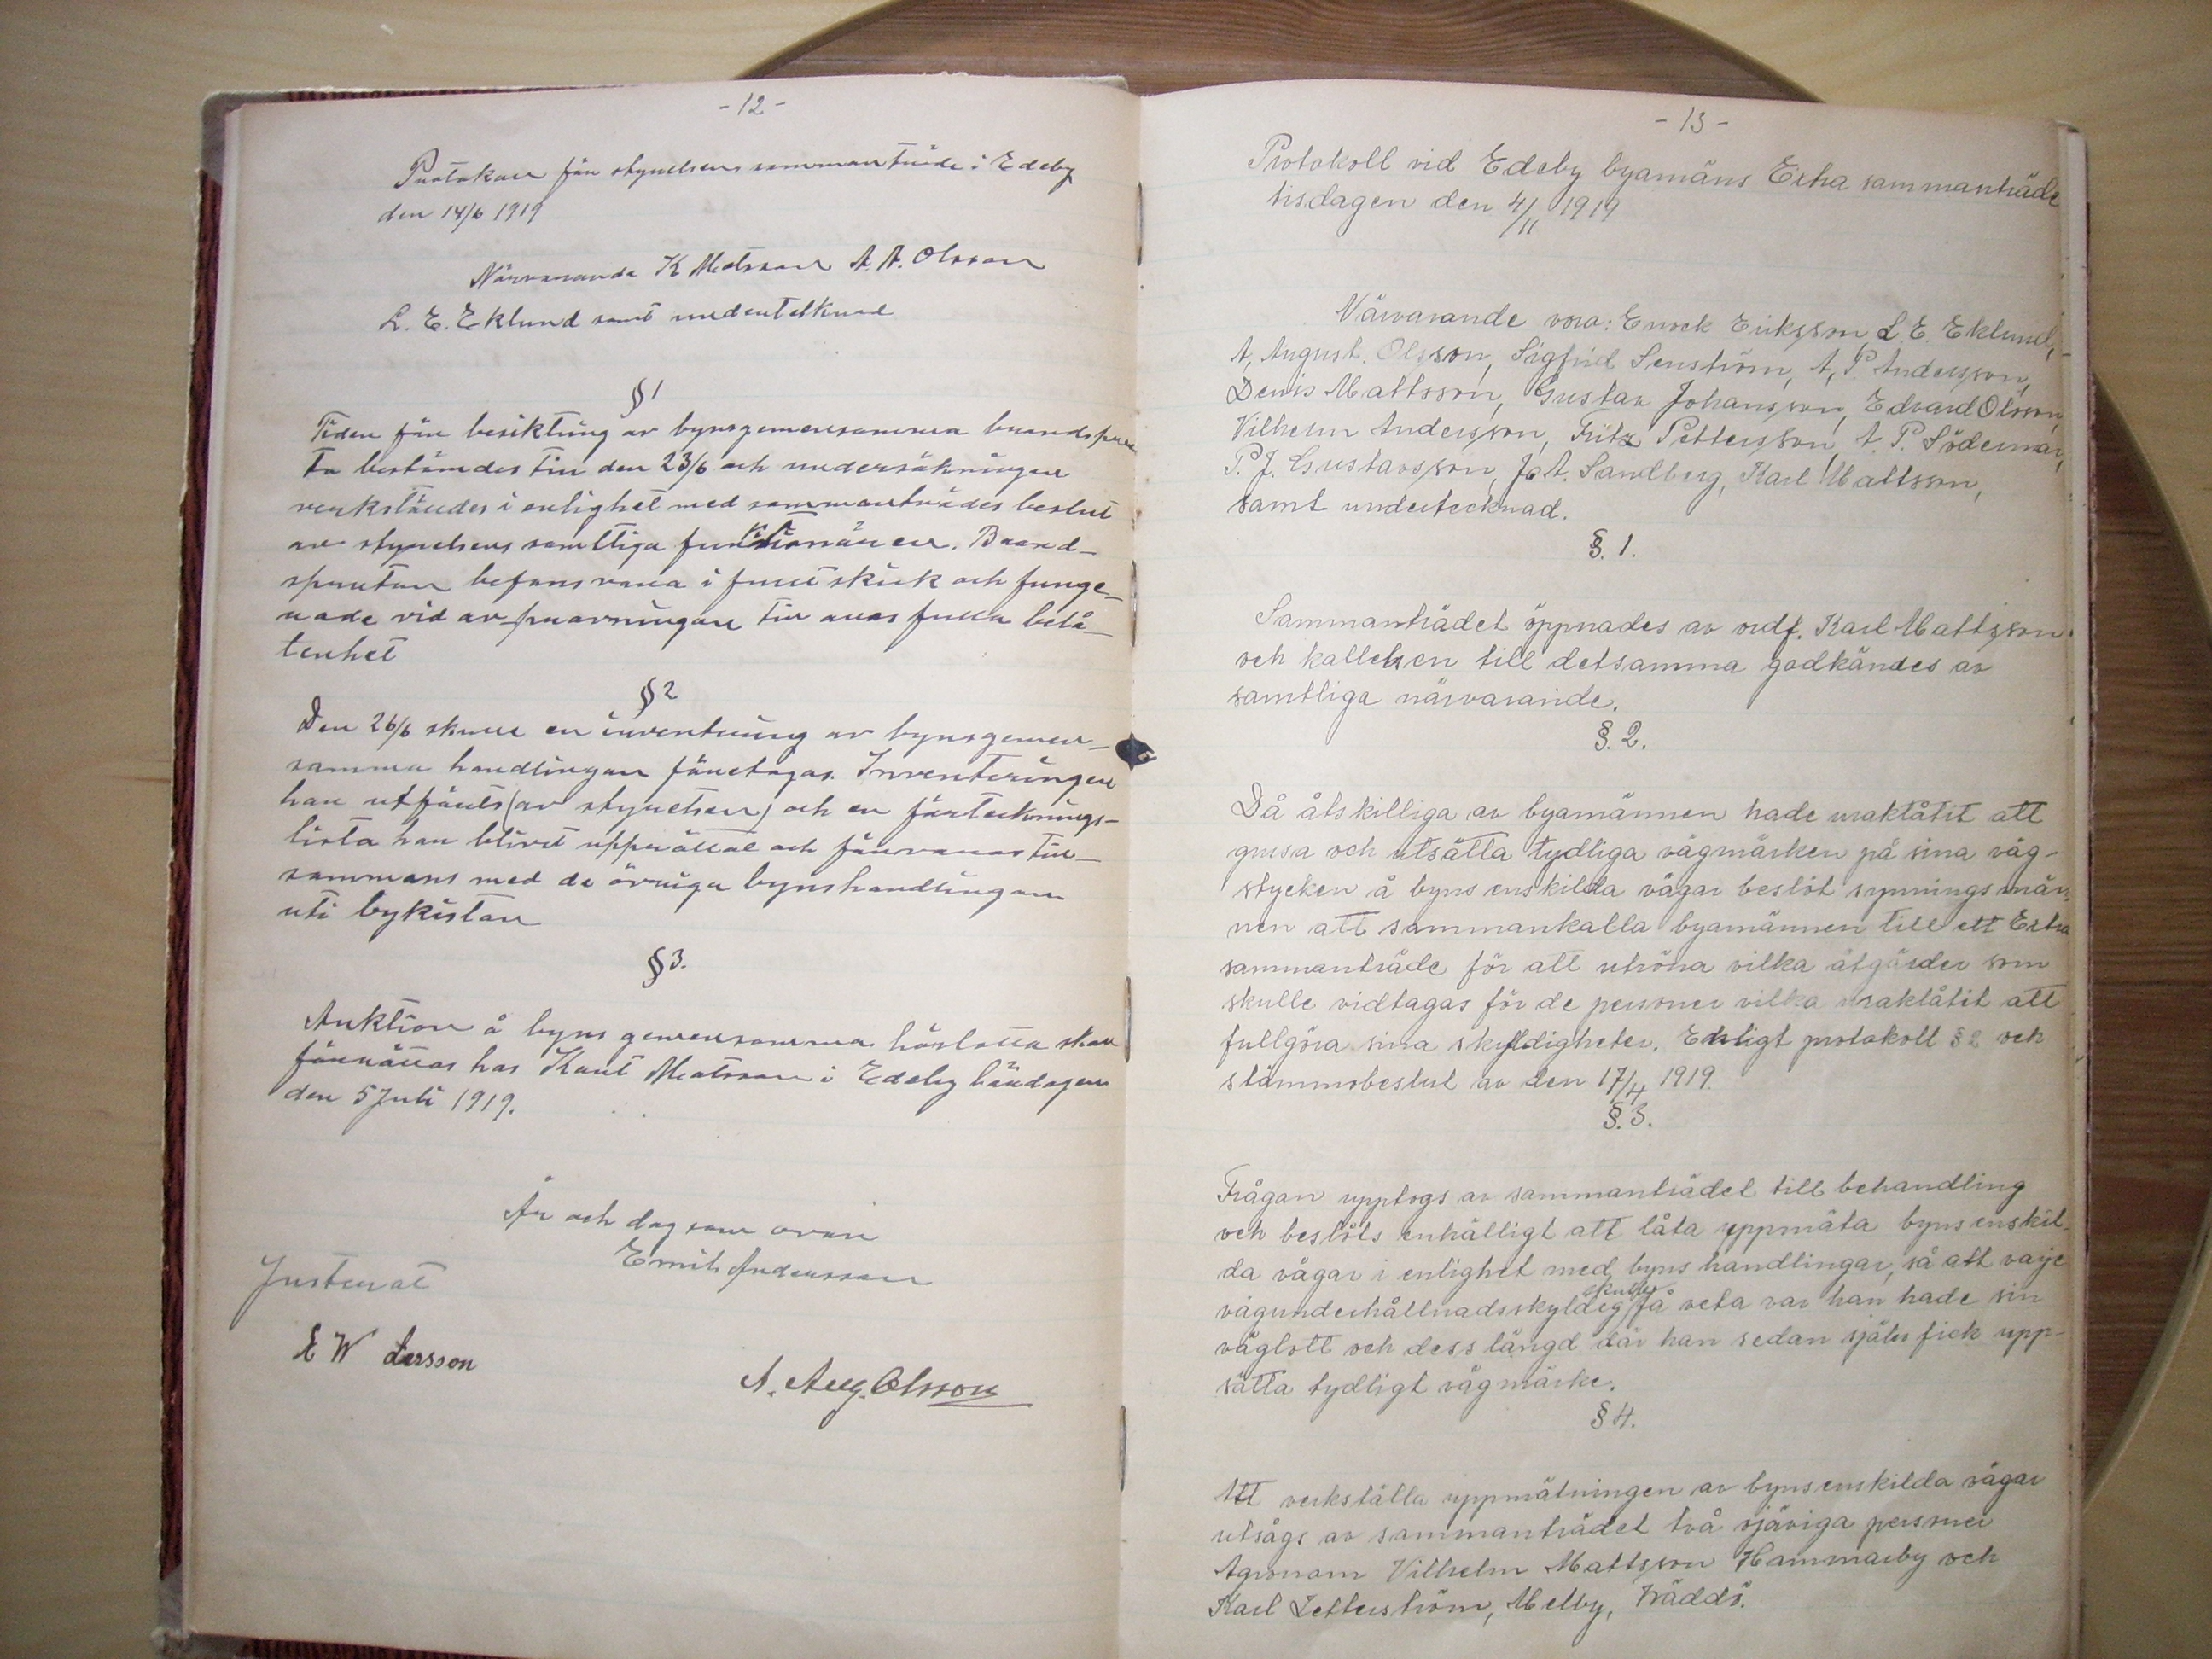 - 12 -
Protokoll för styrelsens sammanträde i Edeby
den 14/6 1919
Närvarande K Matsson A. A. Olsson
L. E. Eklund samt undertelknad
§ 1
Tiden för besiktning av bynsgemensamma brandspru
ta bestämdes till den 23/6 och undersökningen
verkställdes i enlighet med sammanträdes beslut
av styrelsens samttiga funktionärer. Brand-
sprutan befans vara i fullt skick och funge-
rade vid av-provningen till allas fulla belå-
tenhet
§ 2
Den 26/6 skulle en inventering av bynsgemen-
samma handlingar företagas. Inventeringen
har utförts (av styrelsen) och en förtecknings-
lista har blivit upprättat och förvaras till-
sammans med de övriga bynshandlingar
uti bykistan
§ 3.
Auktion å byns gemensamma höslotter skall
förrättas hos Karl Matsson i Edeby lördagen
den 5 Juli 1919.
År och dag som ovan
Emil Andersson
Justerat
E W Larsson
A. Aug. Olsson
- 13 -
Protokoll vid Edeby byamäns Extra sammanträde
tisdagen den 4/11 1919
Närvarande vora: Enock Eriksson, L. E. Eklund,
A, August. Olsson, Sigfrid Senström, A, P. Andersson,
Denis Mattsson, Gustav Johansson, Edvard Olsson,
Vilhelm Andersson, Fritz Pettersson, A. P. Söderman,
P. J. Gustavsson, J. A. Sandberg, Karl Mattsson,
samt undertecknad.
§. 1.
Sammanträdet öppnades av ordf. Karl Mattsson
och kallelsen till detsamma godkändes av
samtliga närvarande.
§. 2.
Då åtskilliga av byamännen hade uraktlåtit att
grusa och utsätta tydliga vägmärken på sina väg-
stycken å byns enskilda vägar beslöt synningsmän-
nen att sammankalla byamännen till ett Extra
sammanträde för att utröna vilka åtgärder som
skulle vidtagas för de personer vilka uraktlåtit att
fullgöra sina skyldigheter. Enligt protokoll § 2 och
stämmobeslut av den 17/4 1919.
§. 3.
Frågan upptogs av sammanträdet till behandling
och beslöts enhälligt att låta uppmäta byns enskil-
da vägar i enlighet med byns handlingar, så att varje
vägunderhållnadsskyldig skulle få veta var han hade sin
väglott och dess längd där han sedan själv fick upp-
sätta tydligt vägmärke.
§ 4.
Att verkställa uppmätningen av byns enskilda vägar
utsågs av sammanträdet två ojäviga personer
Agronom Vilhelm Mattsson Hammarby och
Karl Zetterström, Melby, Fräddö.